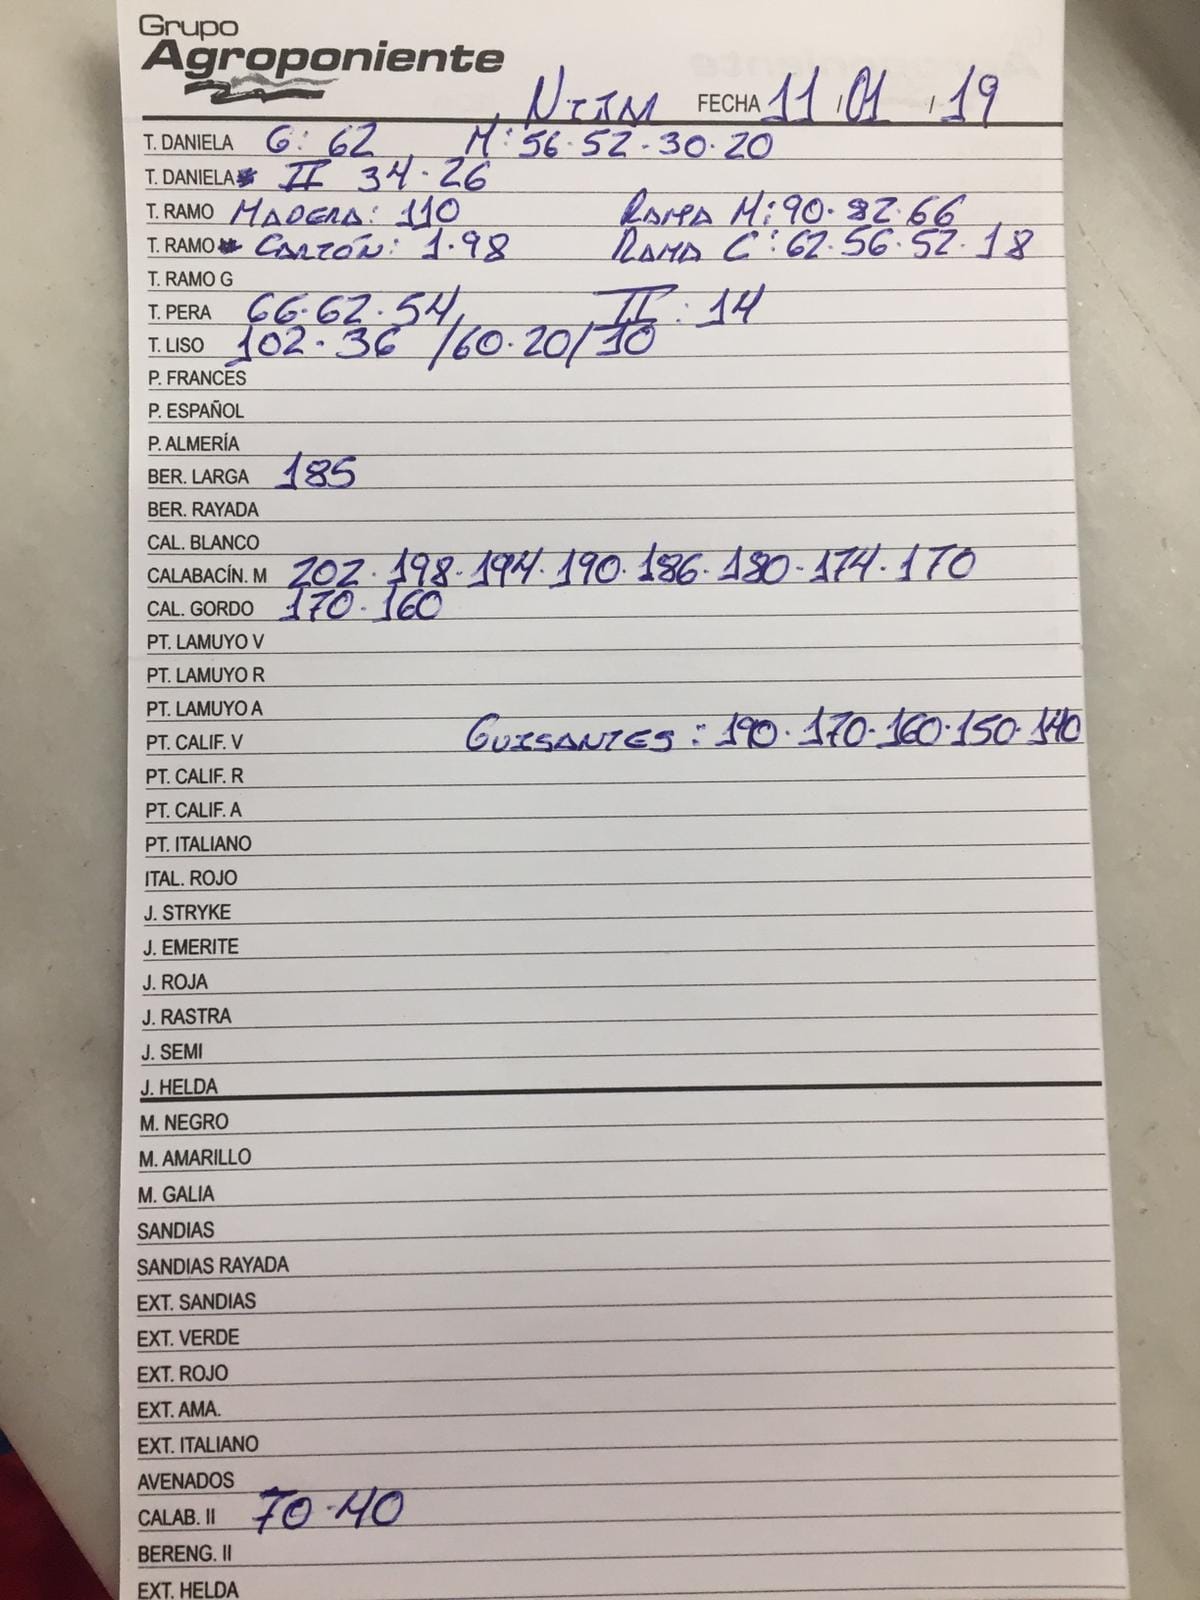 Grupo
Agroponiente
NIJAR FECHA 11 / 01 / 19
T. DANIELA G: 62 M: 56·52·30·20
T. DANIELA II 34·26
T. RAMO MADERA: 110 RAMA M: 90·82·66
T. RAMO CARTÓN: 1·98 RAMA C: 62·56·52·18
T. RAMO G
T. PERA 66·62·54 II: 14
T. LISO 102·36 /60·20/10
P. FRANCÉS
P. ESPAÑOL
P. ALMERÍA
BER. LARGA 185
BER. RAYADA
CAL. BLANCO
CALABACÍN. M 202·198·194·190·186·180·174·170
CAL. GORDO 170·160
PT. LAMUYO V
PT. LAMUYO R
PT. LAMUYO A
PT. CALIF. V GUISANTES: 190·170·160·150·140
PT. CALIF. R
PT. CALIF. A
PT. ITALIANO
ITAL. ROJO
J. STRYKE
J. EMERITE
J. ROJA
J. RASTRA
J. SEMI
J. HELDA
M. NEGRO
M. AMARILLO
M. GALIA
SANDIAS
SANDIAS RAYADA
EXT. SANDIAS
EXT. VERDE
EXT. ROJO
EXT. AMA.
EXT. ITALIANO
AVENADOS
CALAB. II 70·40
BERENG. II
EXT. HELDA